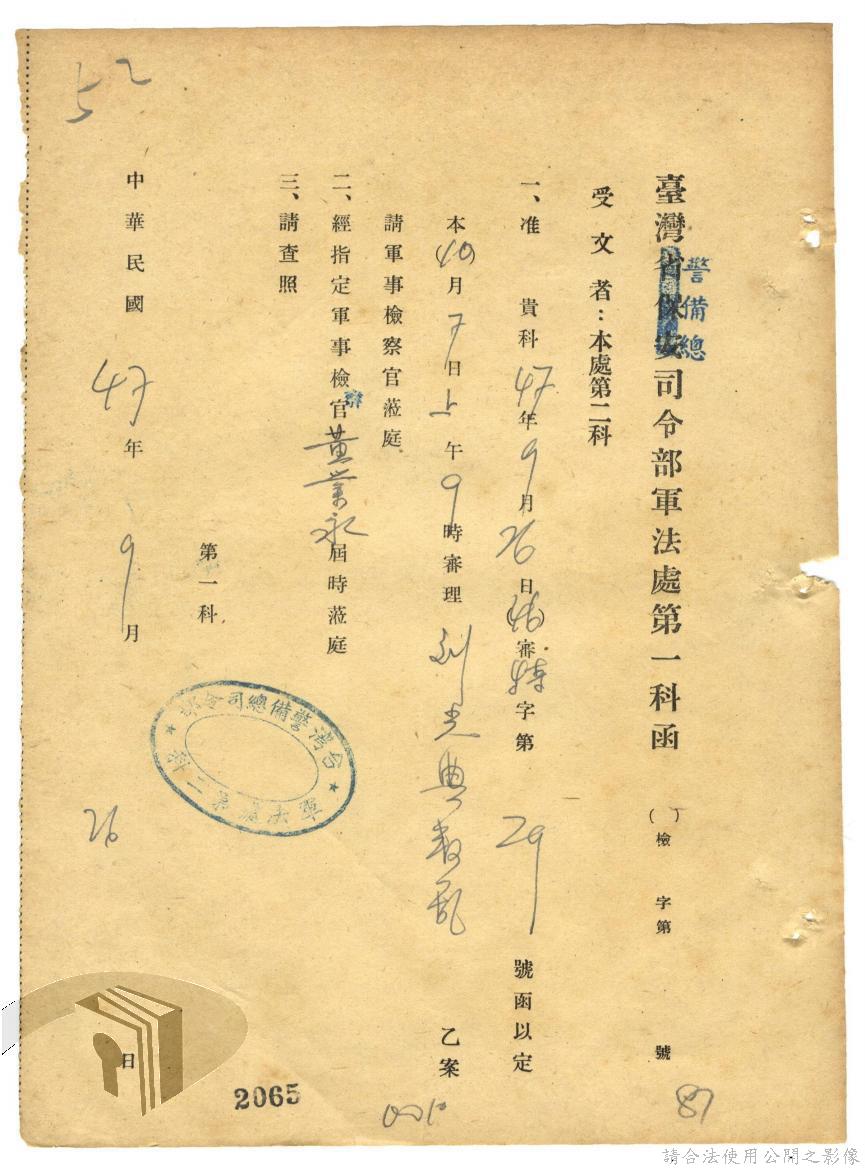 臺灣省保安司令部軍法處第一科函
警備總
( )檢 字第 號
87
受文者：本處第二科
一、准 貴科47年9月26日(46)審特字第29號函以定
本(10)月7日上午9時審理劉光典叛亂 乙案
請軍事檢察官蒞庭
二、經指定軍事檢察官黃業永屆時蒞庭
三、請查照
第一科
台灣警備總司令部
軍法處第二科
中華民國47年9月26日
52
2065
請合法使用公開之影像